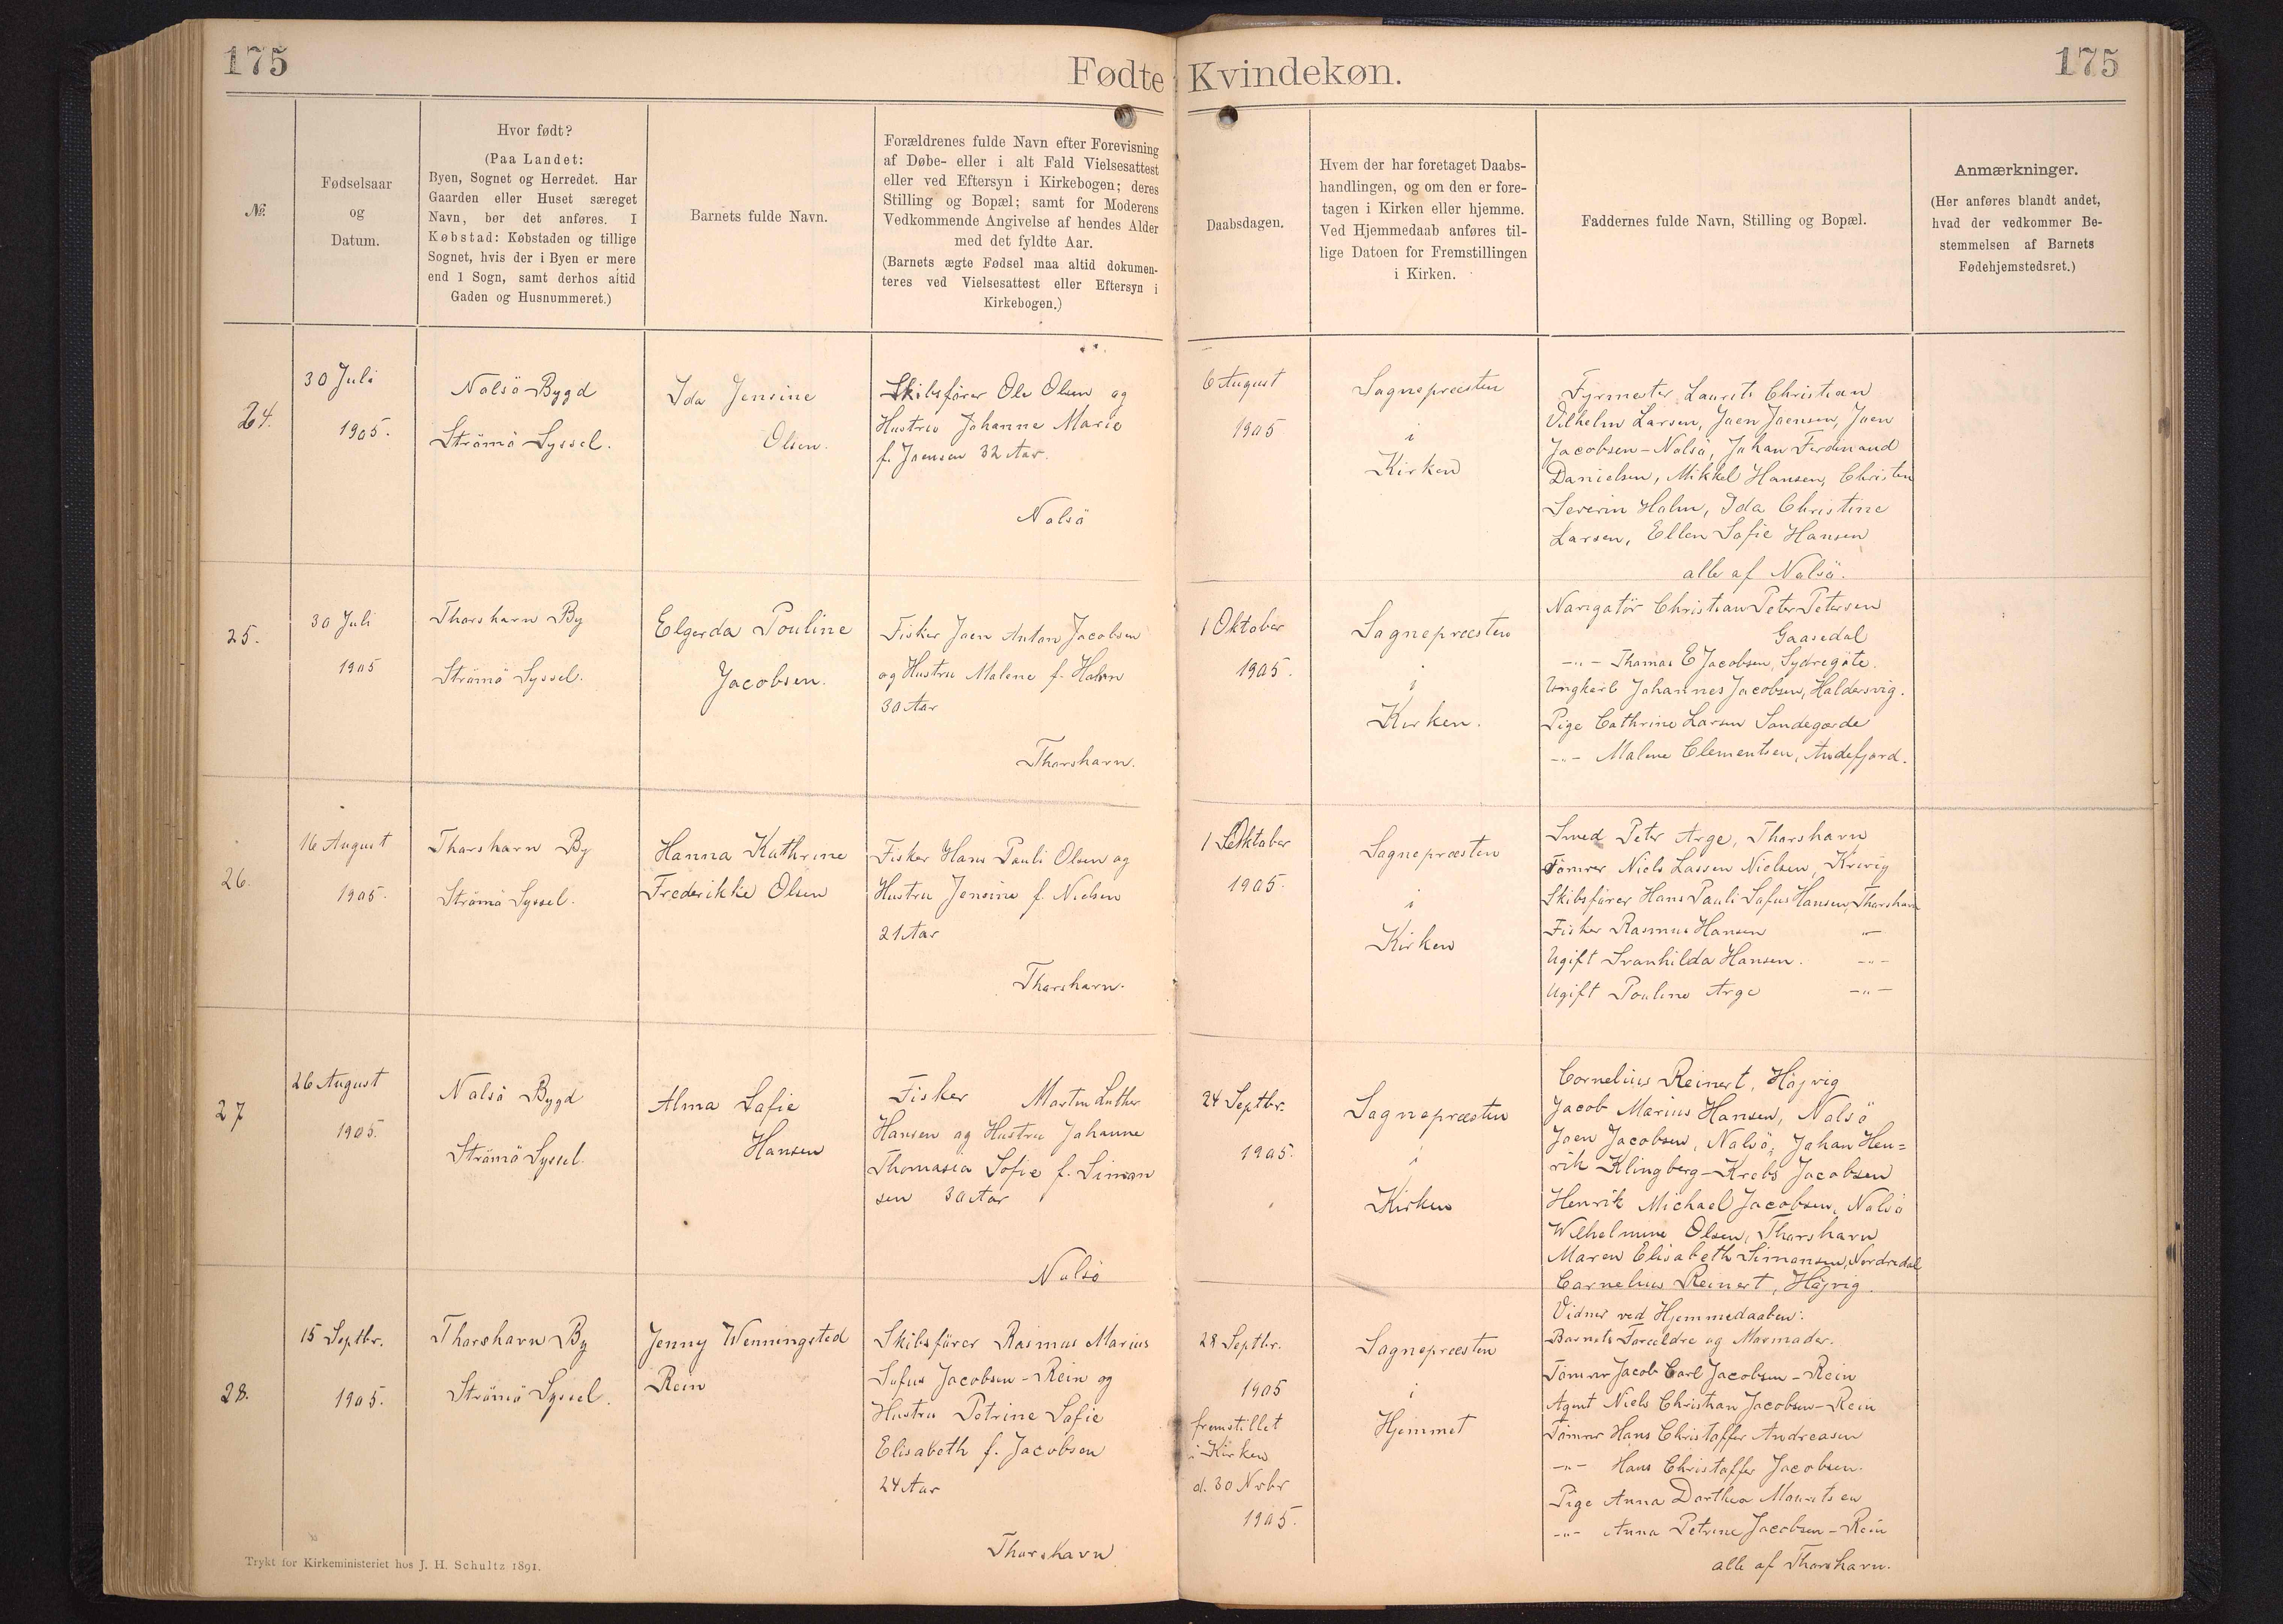 175
Fødte Kvindekøn.
175
No.
Fødselsaar
og
Datum.
Hvor født?
(Paa Landet:
Byen, Sognet og Herredet. Har
Gaarden eller Huset særeget
Navn, bør det anføres. I
Købstad: Købstaden og tillige
Sognet, hvis der i Byen er mere
end 1 Sogn, samt derhos altid
Gaden og Husnummeret.)
Barnets fulde Navn.
Forældrenes fulde Navn efter Forevisning
af Døbe- eller i alt Fald Vielsesattest
eller ved Eftersyn i Kirkebogen; deres
Stilling og Bopæl; samt for Moderens
Vedkommende Angivelse af hendes Alder
med det fyldte Aar.
(Barnets ægte Fødsel maa altid dokumen-
teres ved Vielsesattest eller Eftersyn i
Kirkebogen.)
Daabsdagen.
Hvem der har foretaget Daabs-
handlingen, og om den er fore-
tagen i Kirken eller hjemme.
Ved Hjemmedaab anføres til-
lige Datoen for Fremstillingen
i Kirken.
Faddernes fulde Navn, Stilling og Bopæl.
Anmærkninger.
(Her anføres blandt andet,
hvad der vedkommer Be-
stemmelsen af Barnets
Fødehjemstedsret.)
24.
30 Juli
1905.
Nolsö Bygd
Strömö Syssel.
Ida Jensine
Olsen.
Skibsfører Ole Olsen og
Hustru Johanne Marie
f. Joensen 32 Aar.
Nolsö
6 August
1905
Sognepræsten
i
Kirken
Fyrmester Laurits Christian
Vilhelm Larsen, Joen Joensen, Joen
Jacobsen-Nolsö, Johan Ferdinand
Danielsen, Mikkel Hansen, Christen
Severin Holm, Ida Christine
Larsen, Ellen Sofie Hansen
alle af Nolsö.
25.
30 Juli
1905
Thorshavn By
Strömö Syssel.
Elgerda Pouline
Jacobsen.
Fisker Joen Anton Jacobsen
og Hustru Malene f. Holm
30 Aar
Thorshavn.
1 Oktober
1905.
Sognepræsten
i
Kirken.
Navigatör Christian Peter Petersen
Gaasedal
-"- Thomas E Jacobsen, Sydregöte.
Ungkarl Johannes Jacobsen, Haldersvig.
Pige Cathrine Larsen Sandegærde
-"- Malene Clementsen, Andefjord.
26.
16 August
1905.
Thorshavn By
Strömö Syssel.
Hanna Kathrine
Frederikke Olsen
Fisker Hans Pauli Olsen og
Hustru Jensine f. Nielsen
21 Aar
Thorshavn.
1 Oktober
1905.
Sognepræsten
i
Kirken
Smed Peter Arge, Thorshavn
Tömrer Niels Lassen Nielsen, Kvivig
Skibsförer Hans Pauli Sofus Hansen, Thorshavn
Fisker Rasmus Hansen -"-
Ugift Svanhilda Hansen. -"-
Ugift Pouline Arge -"-
27
26 August
1905.
Nolsö Bygd
Strömö Syssel.
Alma Sofie
Hansen
Fisker Morten Luther
Hansen og Hustru Johanne
Thomasia Sofie f. Simon
sen 30 Aar
Nolsö
24 Septbr.
1905.
Sognepræsten
i
Kirken
Cornelius Reinert, Höjvig
Jacob Marius Hansen, Nolsö
Joen Jacobsen, Nolsö, Johan Hen=
rik Klingberg-Krebs Jacobsen
Henrik Michael Jacobsen, Nolsö
Wilhelmine Olsen, Thorshavn
Maren Elisabeth Simonsen, Nordredal
Cornelius Reinert, Höjvig.
28.
15 Septbr.
1905.
Thorshavn By
Strömö Syssel.
Jenny Wenningsted
Rein
Skibsförer Rasmus Marius
Sofus Jacobsen-Rein og
Hustru Petrine Sofie
Elisabeth f. Jacobsen
24 Aar
Thorshavn
28 Septbr.
1905
fremstillet
i Kirken
d. 30 Nvbr
1905.
Sognepræsten
i
Hjemmet
Vidner ved Hjemmedaaben:
Barnets Forældre og Mormoder.
Tömrer Jacob Carl Jacobsen-Rein
Agent Niels Christian Jacobsen-Rein
Tömrer Hans Christoffer Andreasen
-"- Hans Christoffer Jacobsen.
Pige Anna Dorthea Mouritsen
-"- Anna Petrine Jacobsen-Rein
alle af Thorshavn.
Trykt for Kirkeministeriet hos J. H. Schultz 1891.